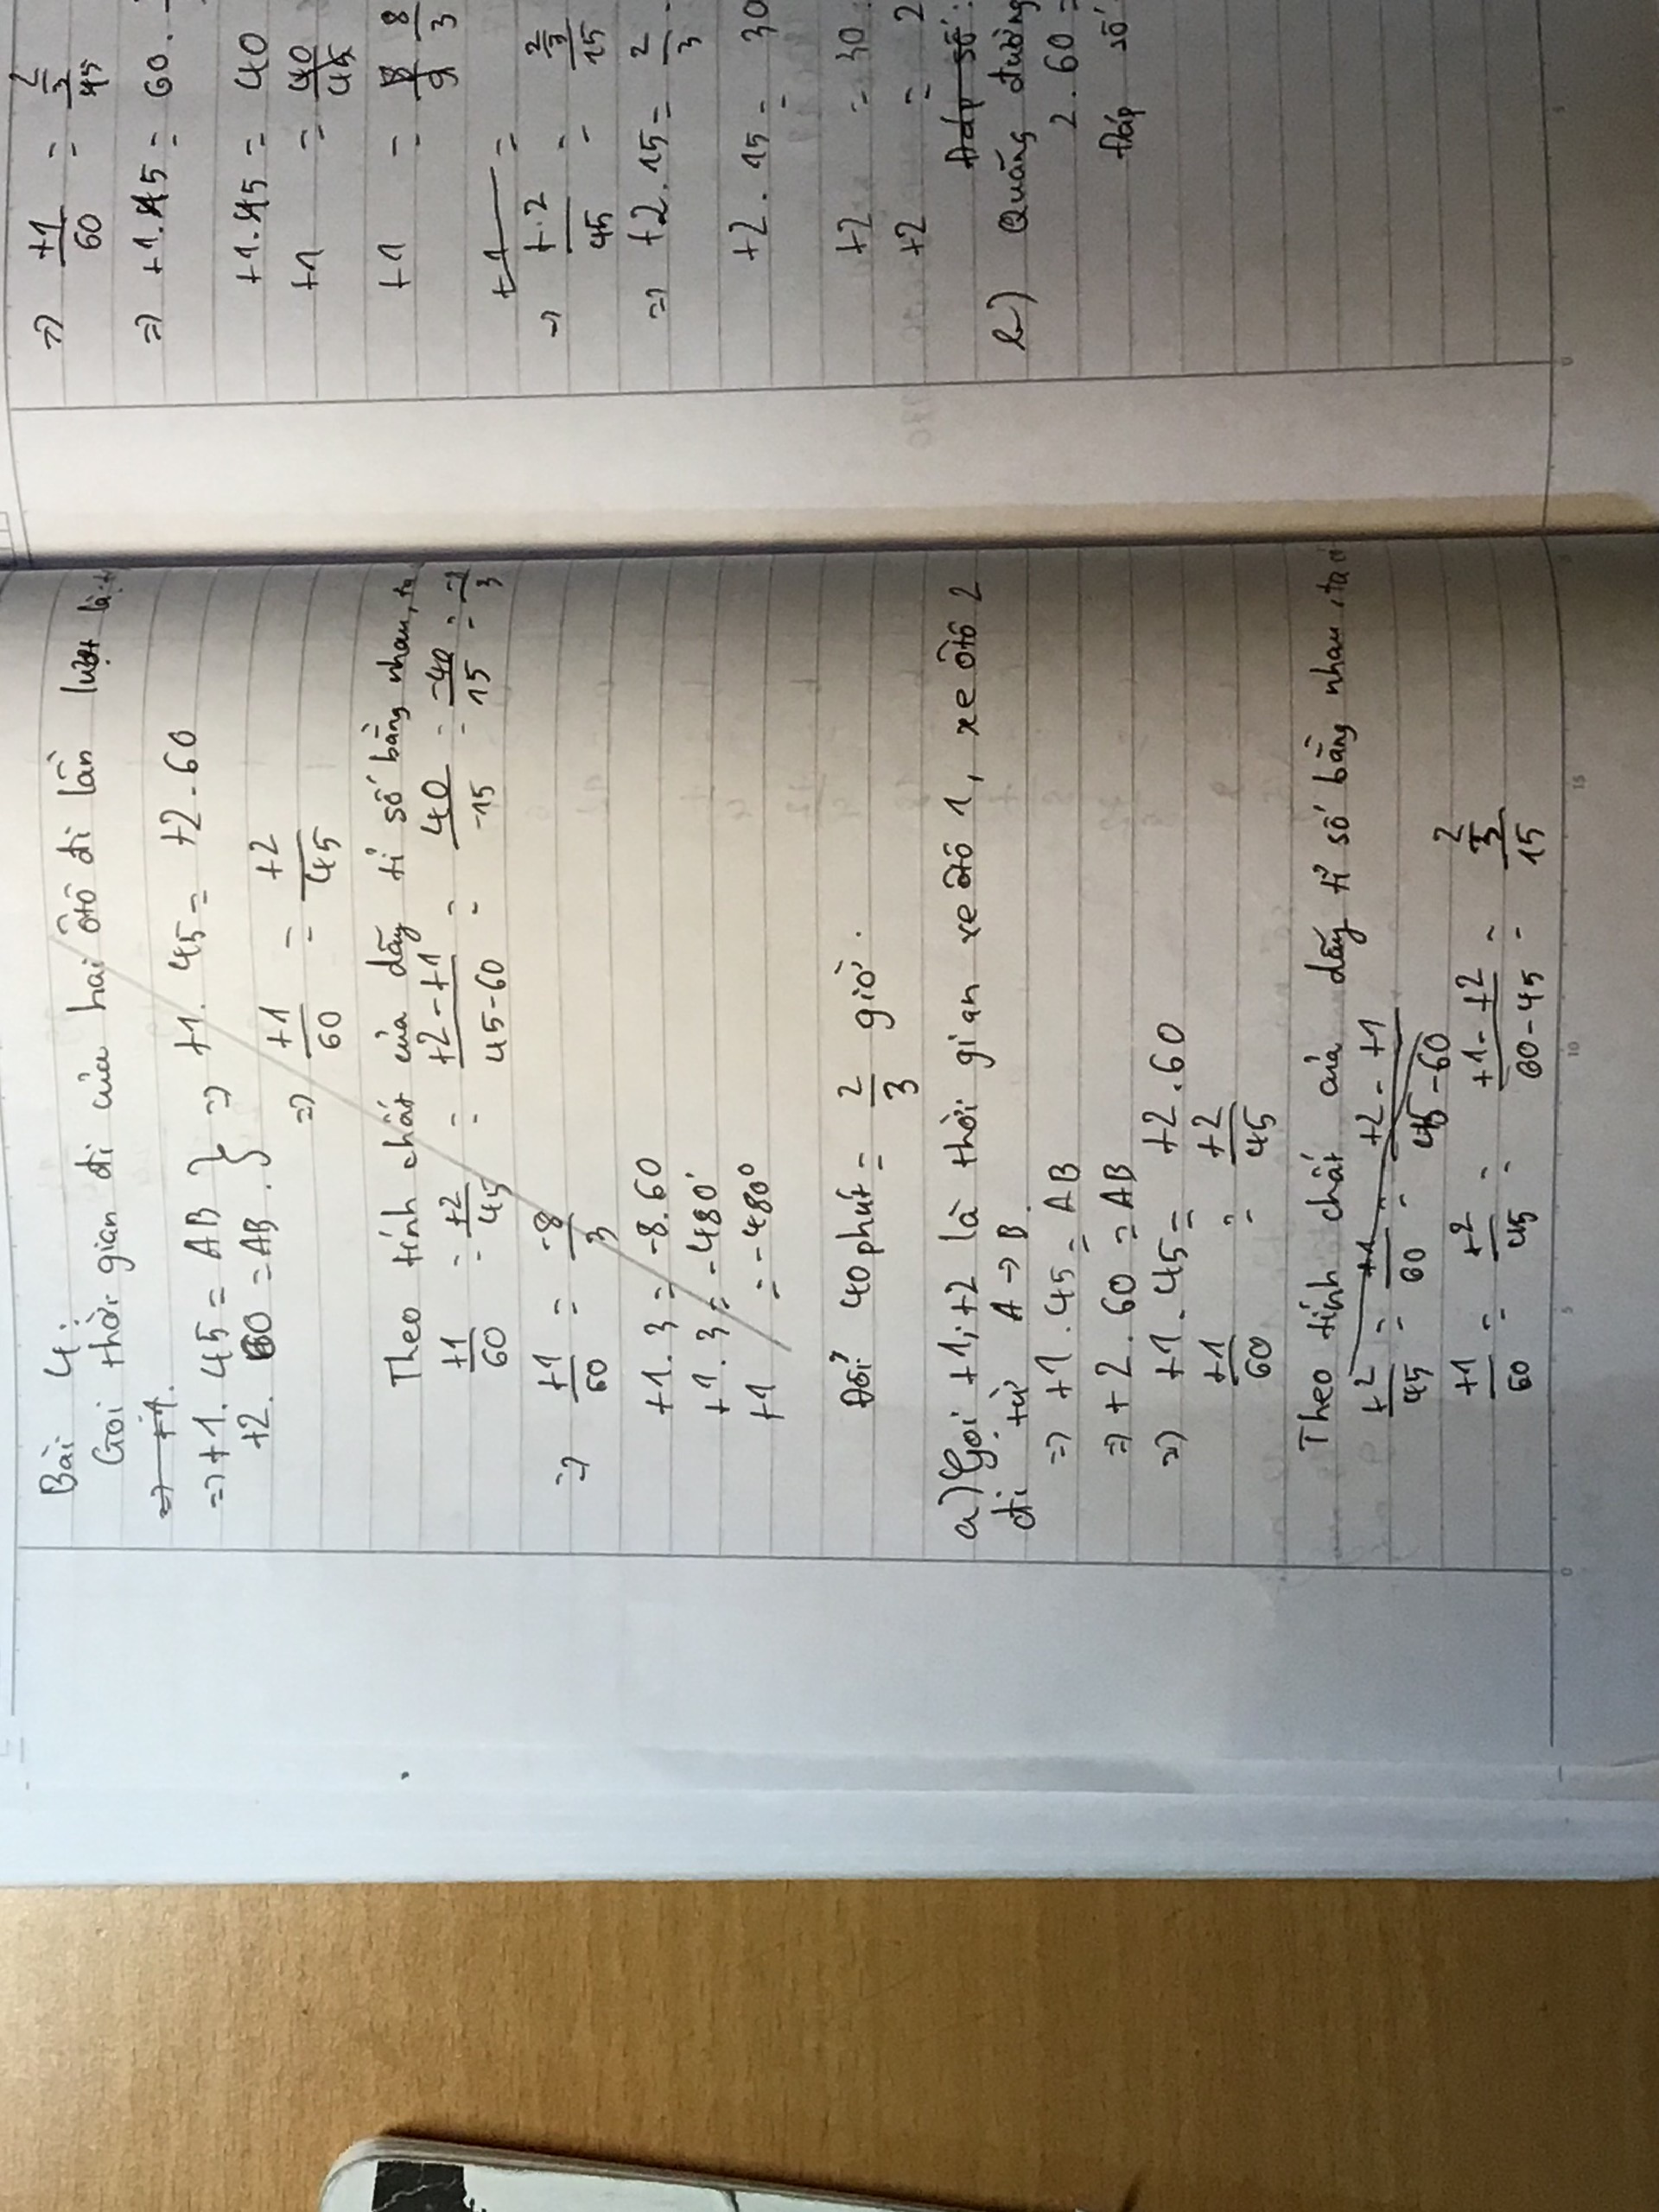 Bài 4:
Gọi thời gian đi của hai ôtô đi lần lượt là: t
=) t1.
=) t1. 45 = AB } =) t1. 45 = t2. 60
t2. 60 = AB.
=) t1/60 = t2/45
Theo tính chất của dãy tỉ số bằng nhau, ta
t1/60 = t2/45 = t2 - t1/45 - 60 = 40/-15 = -40/15 =
=) t1/60 = -8/3
t1. 3 = -8. 60
t1. 3 = -480
t1 = -480
Đổi 40 phút = 2/3 giờ.
a) Gọi t1, t2 là thời gian xe ôtô 1, xe ôtô 2
đi từ A → B.
=) t1. 45 = AB
=) t2. 60 = AB
=) t1. 45 = t2. 60
t1/60 = t2/45
Theo tính chất của dãy tỉ số bằng nhau, ta
t2/45 = t1/60 = t2 - t1/45 - 60
t1/60 = t2/45 = t1 - t2/60 - 45 = 2/3/15
=) t1/60 = 2/3/15
=) t1. 45 = 60.
t1. 45 = 40
t1 = 40/45
t1 = 8/3
t1 =
=) t2/45 = 2/3/15
=) t2. 15 = 2/3
t2. 15 = 30
t2 = 30
t2 = 2
Đáp số:
b) Quãng đường
2. 60 =
Đáp số